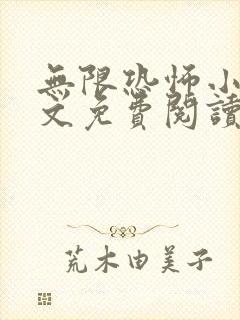 無限恐怖小
文免費閱讀
荒木由美子